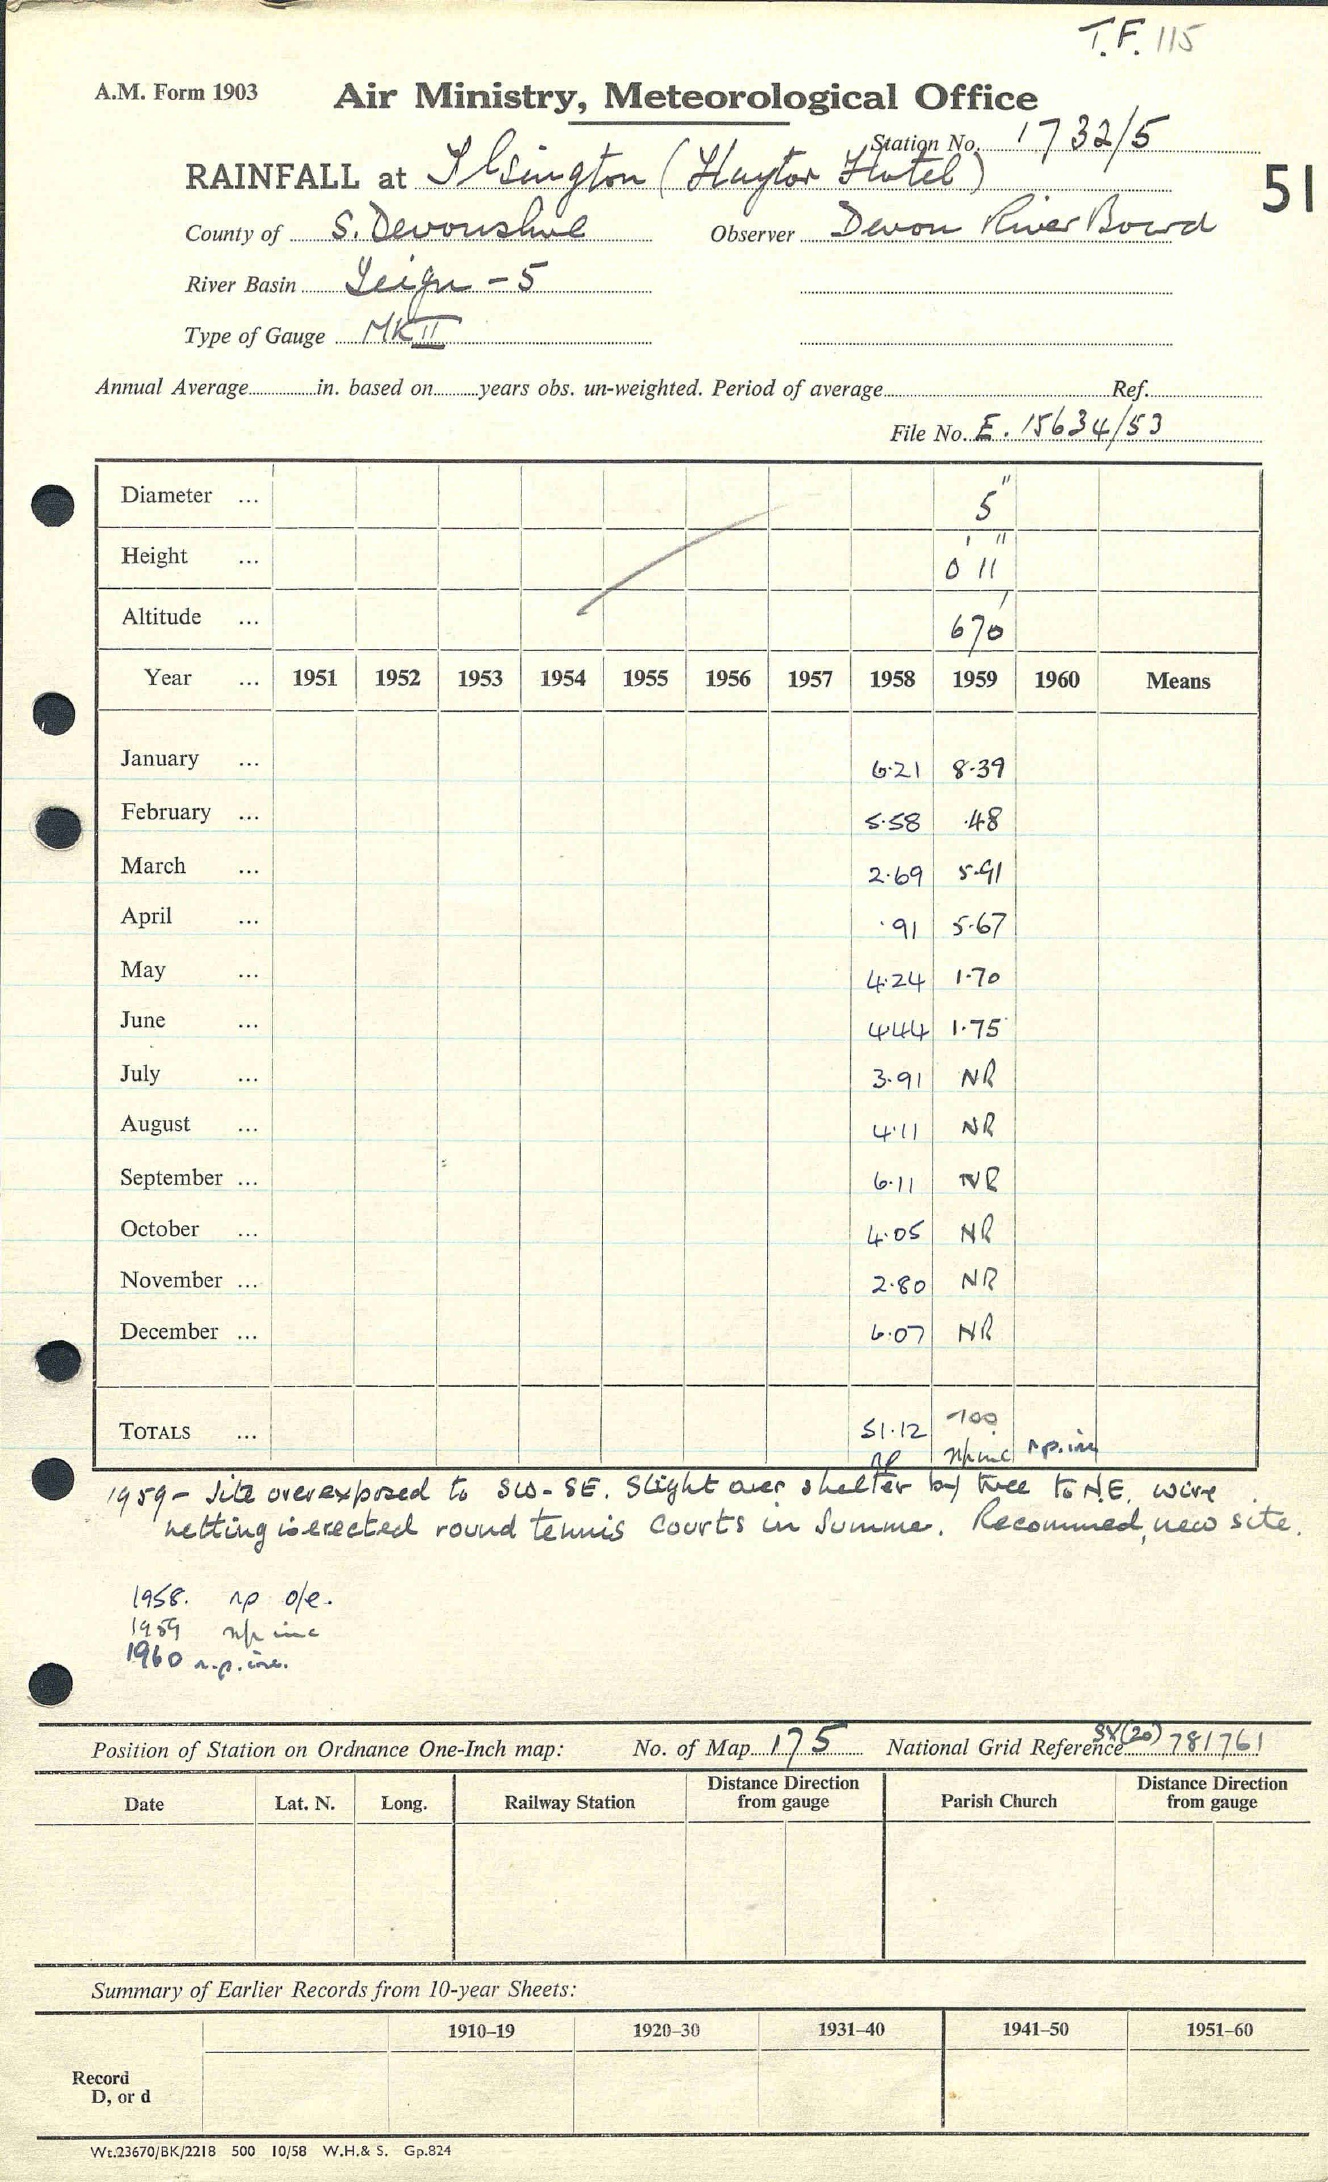 T.F. 115
A.M. Form 1903
Air Ministry, Meteorological Office
Station No. 1732/5
RAINFALL at Ilsington (Haytor Hotel)
51
County of S. Devonshire Observer Devon River Board
River Basin Teign - 5
Type of Gauge MK II
Annual Average in. based on years obs. un-weighted. Period of average Ref.
File No. E. 15634/53
Diameter ... 5"
Height ... 0' 11"
Altitude ... 670'
Year ... 1951 1952 1953 1954 1955 1956 1957 1958 1959 1960 Means
January ... 6.21 8.39
February ... 5.58 .48
March ... 2.69 5.91
April ... .91 5.67
May ... 4.24 1.70
June ... 4.44 1.75
July ... 3.91 NR
August ... 4.11 NR
September ... 6.11 NR
October ... 4.05 NR
November ... 2.80 NR
December ... 6.07 NR
TOTALS ... 51.12
np np inc n.p. inc
1959 - Site overexposed to SW - SE. Slight over shelter by tree to N.E. wire
netting is erected round tennis courts in Summer. Recommed, new site.
1958. np o/e.
1959 np inc
1960 n.p. inc.
Position of Station on Ordnance One-Inch map: No. of Map 175 National Grid Reference SX(20) 781761
Date Lat. N. Long. Railway Station Distance Direction from gauge Parish Church Distance Direction from gauge
Summary of Earlier Records from 10-year Sheets:
1910–19 1920–30 1931–40 1941–50 1951–60
Record
D, or d
Wt.23670/BK/2218 500 10/58 W.H.& S. Gp.824